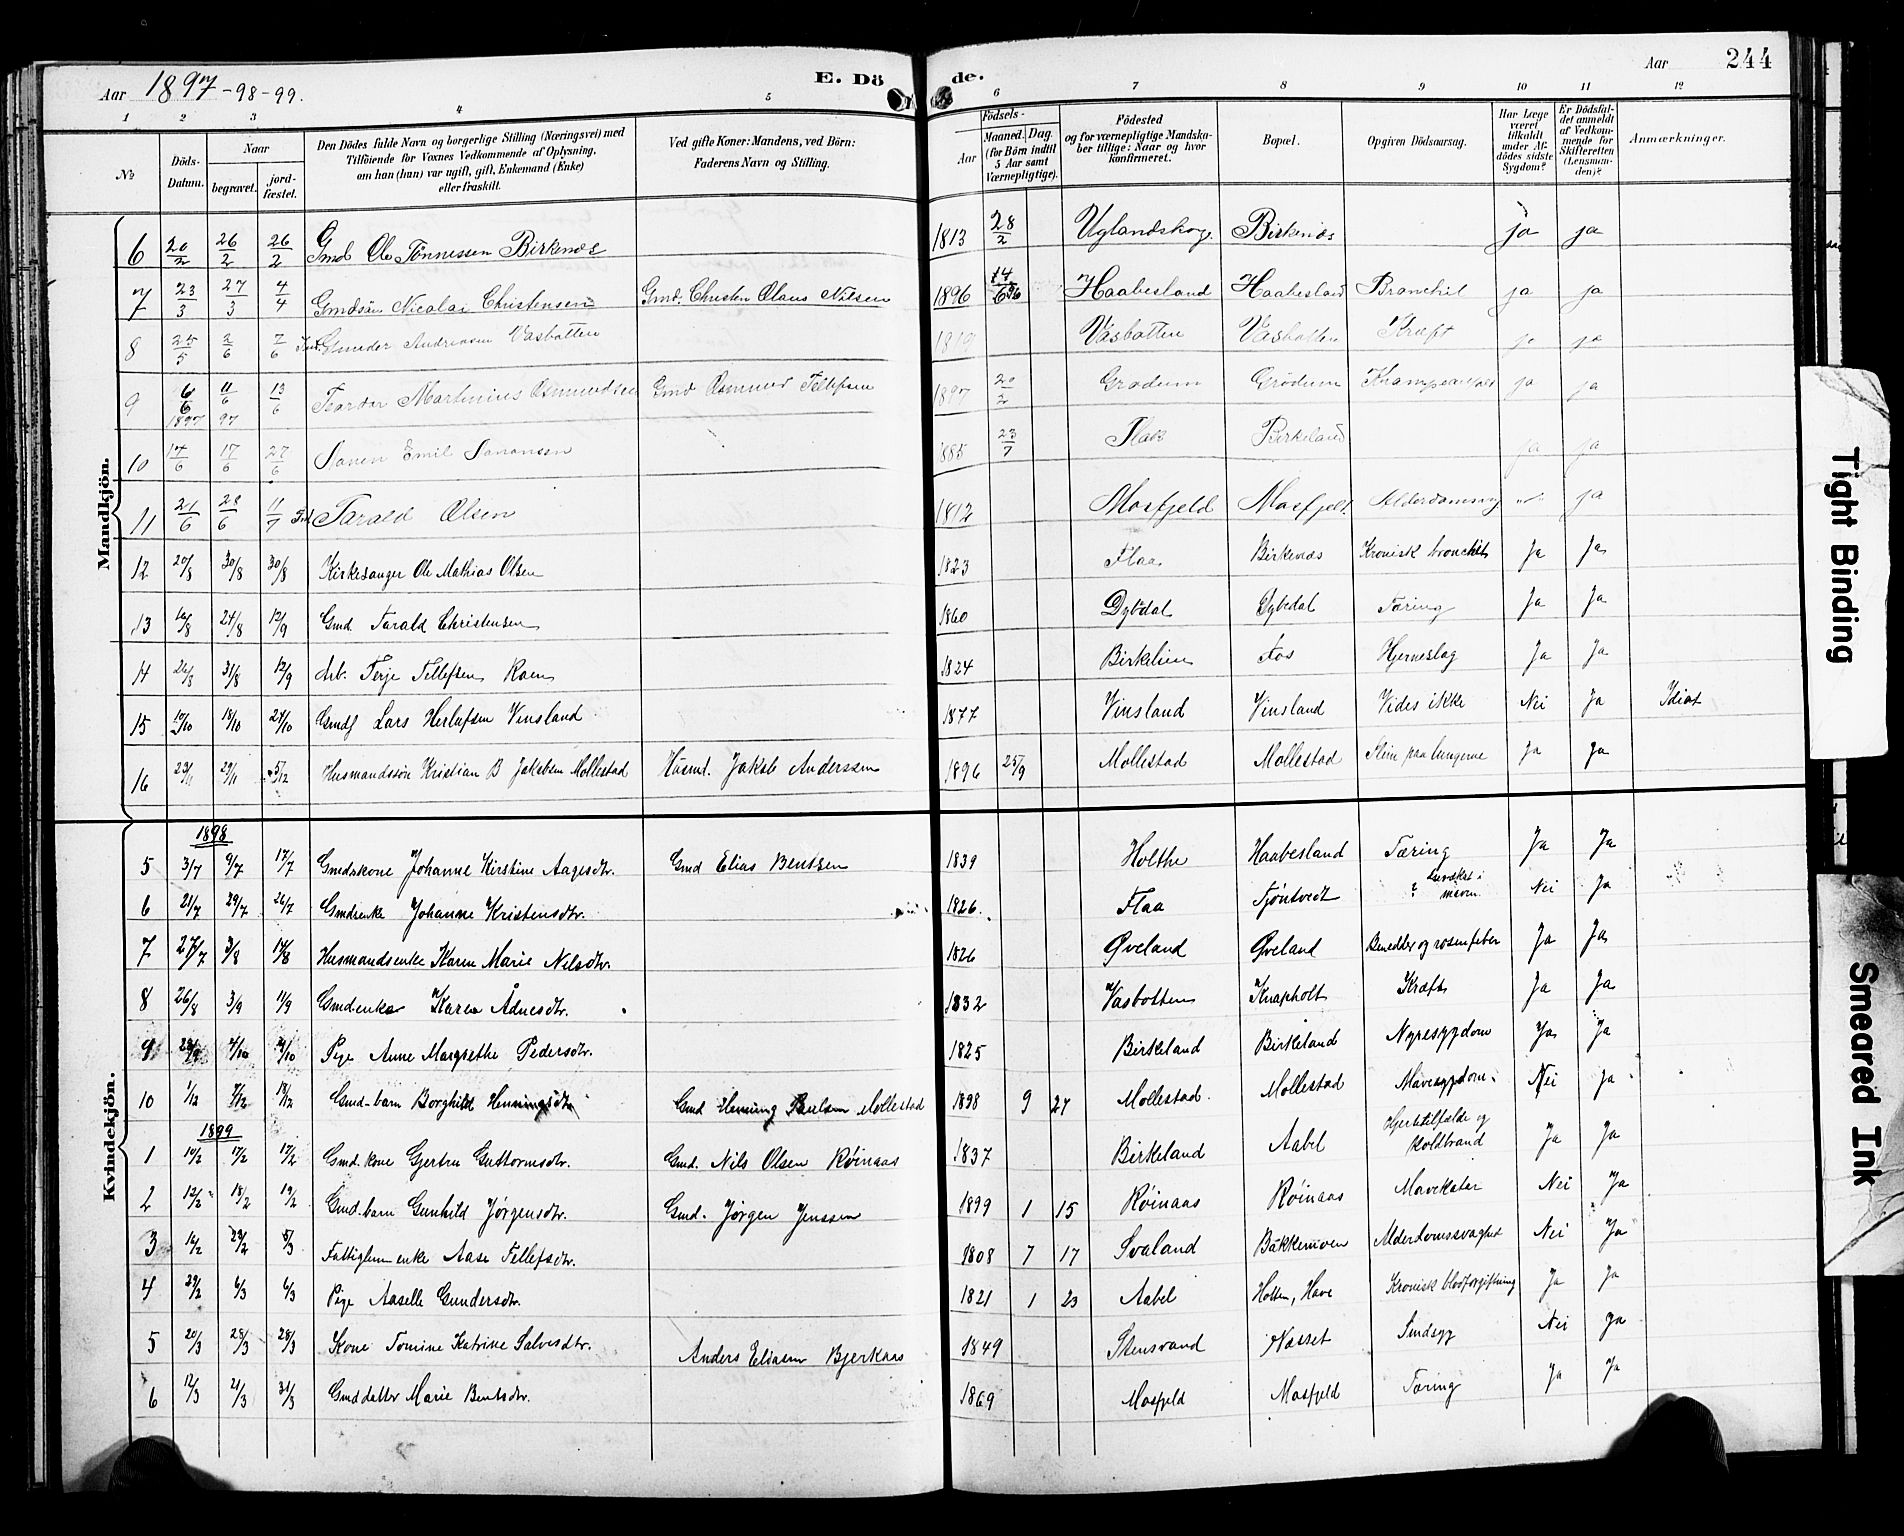 Aar 1897-98-99. E. Dö de. Aar 244
1 2 3 4 5 6 7 8 9 10 11 12
No
Döds-Datum.
Naar
begravet.
jord-fæstet.
Den Dödes fulde Navn og borgerlige Stilling (Næringsvei) med
Tilföiende for Voxnes Vedkommende af Oplysning,
om han (hun) var ugift, gift, Enkemand (Enke)
eller fraskilt.
Ved gifte Koner: Mandens, ved Börn:
Faderens Navn og Stilling.
Födsels-
Aar
Maaned. Dag.
(for Börn indtil
5 Aar samt
Værnepligtige).
Födested
og for værnepligtige Mandska-
ber tillige: Naar og hvor
konfirmeret.
Bopæl.
Opgiven Dödsaarsag.
Har Læge
været
tilkaldt
under Af-
dödes sidste
Sygdom?
Er Dödsfal-
det anmeldt
af Vedkom-
mende for
Skifteretten
(Lensman-
den)?
Anmærkninger.
Mandkjön.
6 20/2 26/2 26/2 Gmd Ole Tönnessen Birkenæs 1813 28/2 Uglandskog Birkenæs ja ja
7 23/3 27/3 4/4 Gmdsön Nicolai Christensen Gmd. Christen Olaus Nilsen 1896 14/6 96 Haabesland Haabesland Bronchit ja ja
8 25/5 2/6 7/6 Gunder Andreasen Vasbotten 1819 Vasbotten Vasbotten Kræft ja ja
9 6/6 1897 11/6 97 13/6 Martinius Osmundsen Gmd Osmund Tellefsen 1897 20/2 Grödum Grödum ja ja
10 14/6 17/6 27/6 Sören Emil Sörensen 1885 23/7 Flak Birkeland ja ja
11 21/6 28/6 11/7 Tarald Olsen 1812 Mosfjeld Mosfjeld ja
12 20/8 30/8 30/8 Kirkesanger Ole Mathias Olsen 1823 Flaa Birkenæs Kronisk bronchit Ja Ja
13 16/8 24/8 12/9 Gmd. Tarald Christensen 1860 Dybedal Dybedal Tæring Ja Ja
14 26/8 31/8 12/9 Arb. Terje Tellefsen Roen 1824 Birkelien Fos Hjerneslag Ja Ja
15 10/10 18/10 24/10 Gmdf Lars Herlufsen Vinsland 1877 Vinsland Vinsland Vides ikke Nei Ja Idiot
16 23/11 29/11 5/12 Husmandssön Kristian B Jakobsen Mollestad Husmd. Jakob Anderssen 1896 25/9 Mollestad Mollestad Sliim paa lungerne Ja Ja
Kvindekjön.
1898
5 3/7 9/7 17/7 Gmdskone Johanne Kirstine Aagesdtr. Gmd Elias Bentsen 1839 Holthe Haabesland Tæring Ja Ja
6 21/7 29/7 26/7 Gmdsenke Johanne Kristensdtr. 1826. Flaa Tjöntvedt ? Udvækst i maven Nei Ja
7 27/7 3/8 14/8 Husmandsenke Karen Marie Nilsdtr. 1826 Øveland Øveland Benedder og rosenfeber Ja Ja
8 26/8 3/9 11/9 Gmdenke Karen Ådnesdtr. 1832 Vasbotten Knapholt Kræft Ja Ja
9 4/10 Pige Anne Margrethe Pedersdtr. 1825 Birkeland Birkeland Nyresygdom Ja Ja
10 1/12 7/12 18/12 Gmd-barn Borghild Henningsdtr Gmd Henning Mollestad 1898 9 27 Mollestad. Mollestad Mavesygdom. Nei Ja
1899
1 10/2 17/2 17/2 Gmd. kone Gjertru Guttormsdtr. Gmd. Nils Olsen Röinaas 1837 Birkeland Aabel Hjertetilfælde og Koldbrand Ja Ja
2 12/2 18/2 19/2 Gmd. barn Gunhild Jørgensdtr. Gmd. Jørgen Jenssen 1899 1 15 Röinaas Röinaas Mavekatar Nei Ja
3 16/2 24/2 5/3 Fattiglem enke Aase Tellefsdtr. 1808 7 17 Svaland Bakkemoen Alderdomssvaghed Nei Ja
4 24/2 6/3 6/3 Pige Aaselle Gundersdtr. 1821 1 23 Aabel Holten, Hove Kronisk blodforgiftning Ja Ja
5 20/3 28/3 28/3 Kone Tomine Katrine Salvesdtr. Anders Eliasen Bjerkaas 1849 Stensvand Næsset Sindsyg Nei Ja
6 12/3 21/3 31/3 Gmddatter Marie Bentsdtr. 1869 Mosfjeld Mosfjeld Tæring Ja Ja
Tight Binding
Smeared Ink